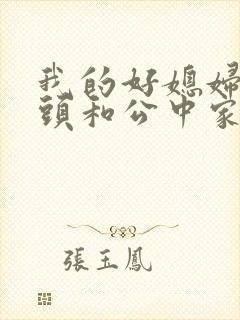 我的好媳婦
頭和公中家
張玉鳳